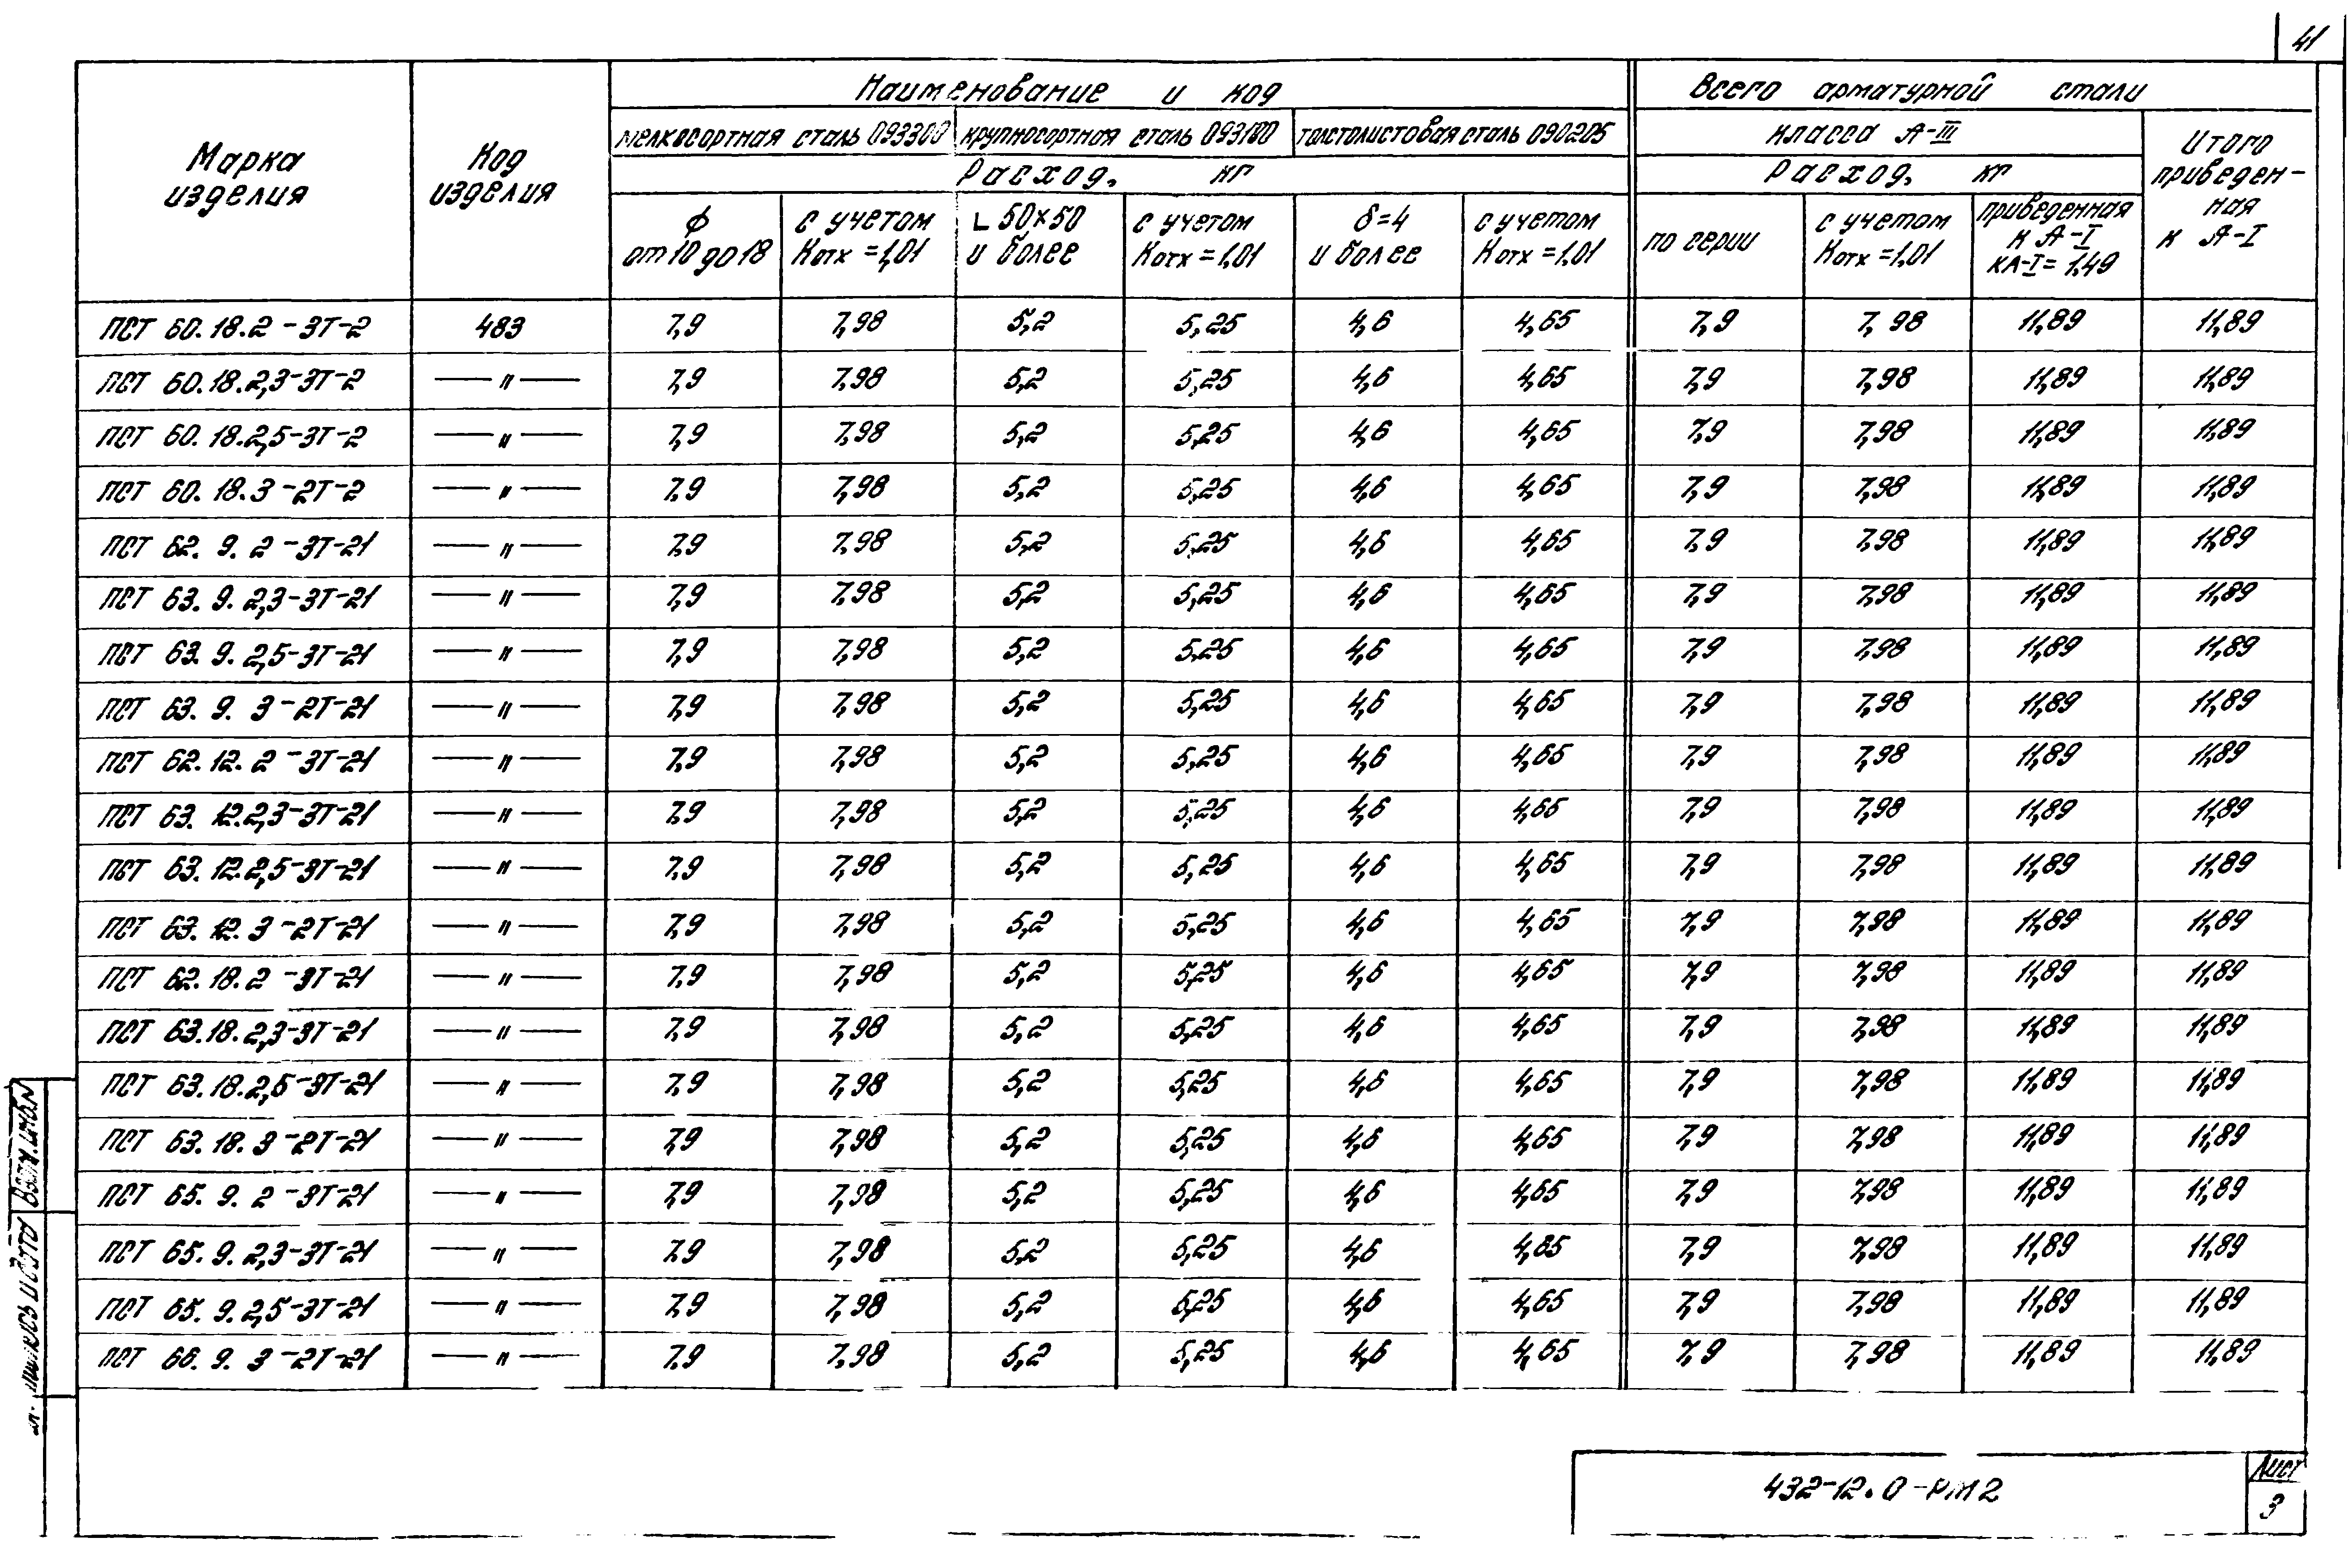 41
Марка изделия
Код изделия
Наименование и код
Всего арматурной стали
мелкосортная сталь 093300
крупносортная сталь 093100
толстолистовая сталь 090205
класса А-III
Итого приведенная к А-I
Расход, кг
Расход, кг
ф от 10 до 18
с учетом Котх =1,01
∟50×50 и более
с учетом Котх =1,01
δ=4 и более
с учетом Котх =1,01
по серии
с учетом Котх =1,01
приведенная к А-I КА-I= 1,49
ПСТ 60.18.2 -3Т-2 483 7,9 7,98 5,2 5,25 4,6 4,65 7,9 7,98 11,89 11,89
ПСТ 60.18.2,3-3Т-2 —〃— 7,9 7,98 5,2 5,25 4,6 4,65 7,9 7,98 11,89 11,89
ПСТ 60.18.2,5-3Т-2 —〃— 7,9 7,98 5,2 5,25 4,6 4,65 7,9 7,98 11,89 11,89
ПСТ 60.18.3 -2Т-2 —〃— 7,9 7,98 5,2 5,25 4,6 4,65 7,9 7,98 11,89 11,89
ПСТ 62.9.2 -3Т-21 —〃— 7,9 7,98 5,2 5,25 4,6 4,65 7,9 7,98 11,89 11,89
ПСТ 63.9.2,3-3Т-21 —〃— 7,9 7,98 5,2 5,25 4,6 4,65 7,9 7,98 11,89 11,89
ПСТ 63.9.2,5-3Т-21 —〃— 7,9 7,98 5,2 5,25 4,6 4,65 7,9 7,98 11,89 11,89
ПСТ 63.9.3 -2Т-21 —〃— 7,9 7,98 5,2 5,25 4,6 4,65 7,9 7,98 11,89 11,89
ПСТ 62.12.2 -3Т-21 —〃— 7,9 7,98 5,2 5,25 4,6 4,65 7,9 7,98 11,89 11,89
ПСТ 63.12.2,3-3Т-21 —〃— 7,9 7,98 5,2 5,25 4,6 4,65 7,9 7,98 11,89 11,89
ПСТ 63.12.2,5-3Т-21 —〃— 7,9 7,98 5,2 5,25 4,6 4,65 7,9 7,98 11,89 11,89
ПСТ 63.12.3 -2Т-21 —〃— 7,9 7,98 5,2 5,25 4,6 4,65 7,9 7,98 11,89 11,89
ПСТ 62.18.2 -3Т-21 —〃— 7,9 7,98 5,2 5,25 4,6 4,65 7,9 7,98 11,89 11,89
ПСТ 63.18.2,3-3Т-21 —〃— 7,9 7,98 5,2 5,25 4,6 4,65 7,9 7,98 11,89 11,89
ПСТ 63.18.2,5-3Т-21 —〃— 7,9 7,98 5,2 5,25 4,6 4,65 7,9 7,98 11,89 11,89
ПСТ 63.18.3 -2Т-21 —〃— 7,9 7,98 5,2 5,25 4,6 4,65 7,9 7,98 11,89 11,89
ПСТ 65.9.2 -3Т-21 —〃— 7,9 7,98 5,2 5,25 4,6 4,65 7,9 7,98 11,89 11,89
ПСТ 65.9.2,3-3Т-21 —〃— 7,9 7,98 5,2 5,25 4,6 4,65 7,9 7,98 11,89 11,89
ПСТ 65.9.2,5-3Т-21 —〃— 7,9 7,98 5,2 5,25 4,6 4,65 7,9 7,98 11,89 11,89
ПСТ 66.9.3 -2Т-21 —〃— 7,9 7,98 5,2 5,25 4,6 4,65 7,9 7,98 11,89 11,89
432-12.0-РМ2
Лист
3